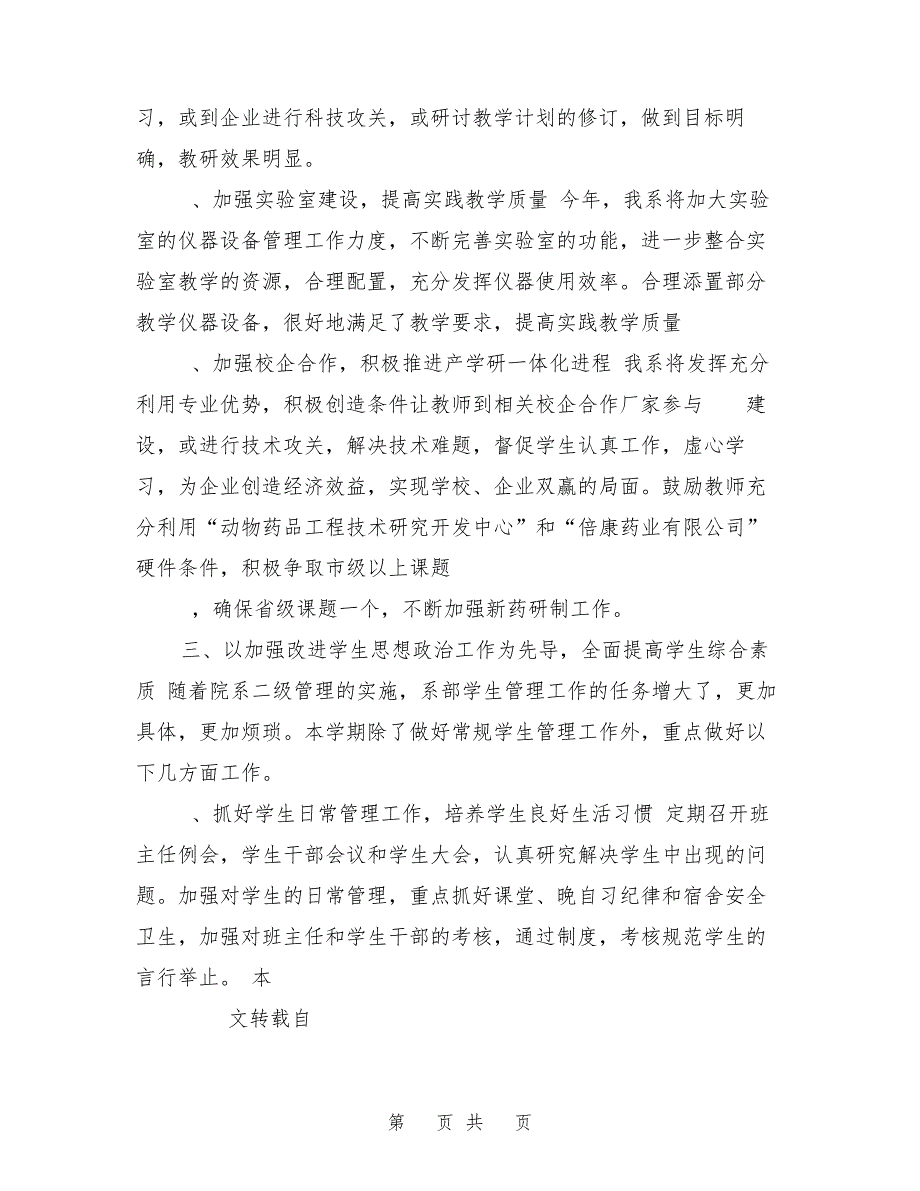 习，或到企业进行科技攻关，或研讨教学计划的修订，做到目标明
确，教研效果明显。
、加强实验室建设，提高实践教学质量 今年，我系将加大实验
室的仪器设备管理工作力度，不断完善实验室的功能，进一步整合实
验室教学的资源，合理配置，充分发挥仪器使用效率。合理添置部分
教学仪器设备，很好地满足了教学要求，提高实践教学质量
、加强校企合作，积极推进产学研一体化进程 我系将发挥充分
利用专业优势，积极创造条件让教师到相关校企合作厂家参与 建
设，或进行技术攻关，解决技术难题，督促学生认真工作，虚心学
习，为企业创造经济效益，实现学校、企业双赢的局面。鼓励教师充
分利用“动物药品工程技术研究开发中心”和“倍康药业有限公司”
硬件条件，积极争取市级以上课题
，确保省级课题一个，不断加强新药研制工作。
三、以加强改进学生思想政治工作为先导，全面提高学生综合素
质 随着院系二级管理的实施，系部学生管理工作的任务增大了，更加
具体，更加烦琐。本学期除了做好常规学生管理工作外，重点做好以
下几方面工作。
、抓好学生日常管理工作，培养学生良好生活习惯 定期召开班
主任例会，学生干部会议和学生大会，认真研究解决学生中出现的问
题。加强对学生的日常管理，重点抓好课堂、晚自习纪律和宿舍安全
卫生，加强对班主任和学生干部的考核，通过制度，考核规范学生的
言行举止。 本
文转载自
第 页 共 页